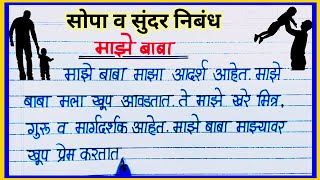 सोपा व सुंदर निबंध
माझे बाबा
माझे बाबा माझा आदर्श आहेत. माझे
बाबा मला खूप आवडतात. ते माझे खरे मित्र,
गुरू व मार्गदर्शक आहेत. माझे बाबा माझ्यावर
खूप प्रेम करतात